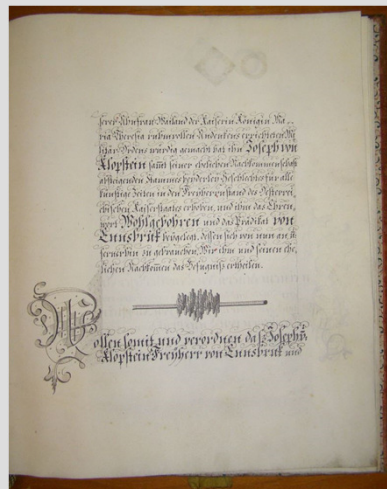 serer Uhnfrau Wailand der Kaiserin Königin Ma,,
ria Theresia ruhmvollen Andenkens errichteten Mi
litär Ordens würdig gemacht hat ihn Joseph von
Klopstein sammt seiner ehelichen Nachkommenschaft
absteigenden Stammes beyderley Geschlechts für alle
künftige Zeiten in den Freyherrnstand des Oesterrei,
chischen Kaiserstaates erhoben, und ihm das Ehren,
wort Wohlgebohren und das Prädikat von
Ennsbruk beygelegt, dessen sich von nun an
zu gebrauchen, Wir ihm und seinen ehe,
lichen Nachkomen das Befugniß ertheilen.
Wollen somit und verordnen daß Joseph
Klopstein Freyherr von Ennsbruk und